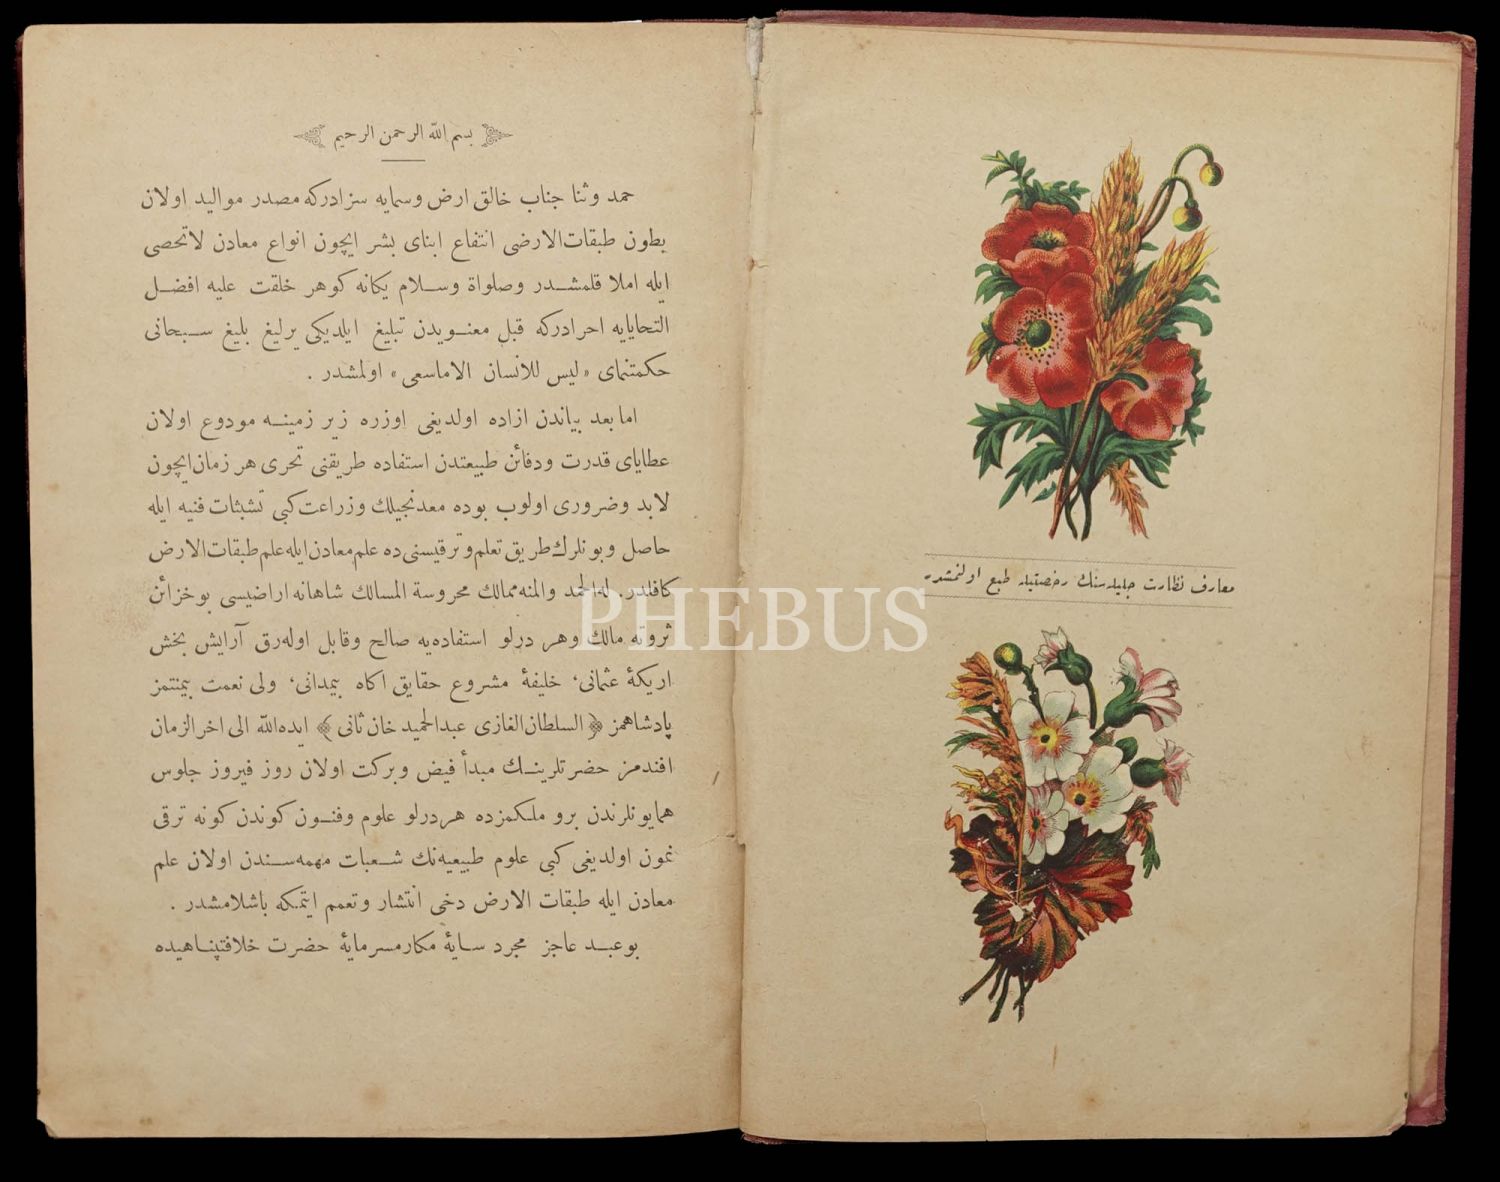 معارف نظارت جلیله‌سنك رخصتیله طبع اولنمشدر
بسم الله الرحمن الرحيم
حمد وثنا جناب خالق ارض وسمایه سزادركه مصدر موالید اولان
بطون طبقات‌الارضی انتفاع ابنای بشر ایچون انواع معادن لاتحصی
ایله املا قلمشدر وصلواة وسلام یكانه كوهر خلقت علیه افضل
التحایایه احرادركه قبل معنویدن تبلیغ ایلدیكی یرلیغ بلیغ سبحانی
حكمتنمای «لیس للانسان الاماسعی» اولمشدر .
امابعد بیاندن ازاده اولدیغی اوزره زیر زمینه مودوع اولان
عطایای قدرت ودفائن طبیعتدن استفاده طریقنی تحری هر زمان‌ایچون
لابد وضروری اولوب بوده معدنجیلك وزراعت‌كبی تشبثات فنیه ایله
حاصل وبونلرك‌طریق تعلم‌وترقیسنی‌ده علم‌معادن‌ایله‌علم‌طبقات‌الارض
كافلدر. له‌الحمد والمنه‌ممالك محروسة المسالك شاهانه‌اراضیسی بوخزائن
ثروته مالك وهر درلو استفاده‌یه صالح وقابل اوله‌رق آرایش بخش
اریكهٔ عثمانی، خلیفهٔ مشروع حقایق آكاه یمدانی، ولی نعمت بیمنتمز
پادشاهمز ﴿ السلطان‌الغازی عبدالحمید خان ثانی ﴾ ایده‌الله الی اخرالزمان
افندمز حضرتلرینك مبدأ فیض وبركت اولان روز فیروز جلوس
همایونلرندن برو ملكمزده هردرلو علوم وفنون كوندن كونه ترقی
نمون اولدیغی كبی علوم طبیعیه‌نك شعبات مهمه‌سندن اولان علم
معادن ایله طبقات الارض دخی انتشار وتعمم ایتمكه باشلامشدر .
بوعبد عاجز مجرد سایهٔ مكارمسرمایهٔ حضرت خلافتپناهیده
PHEBUS